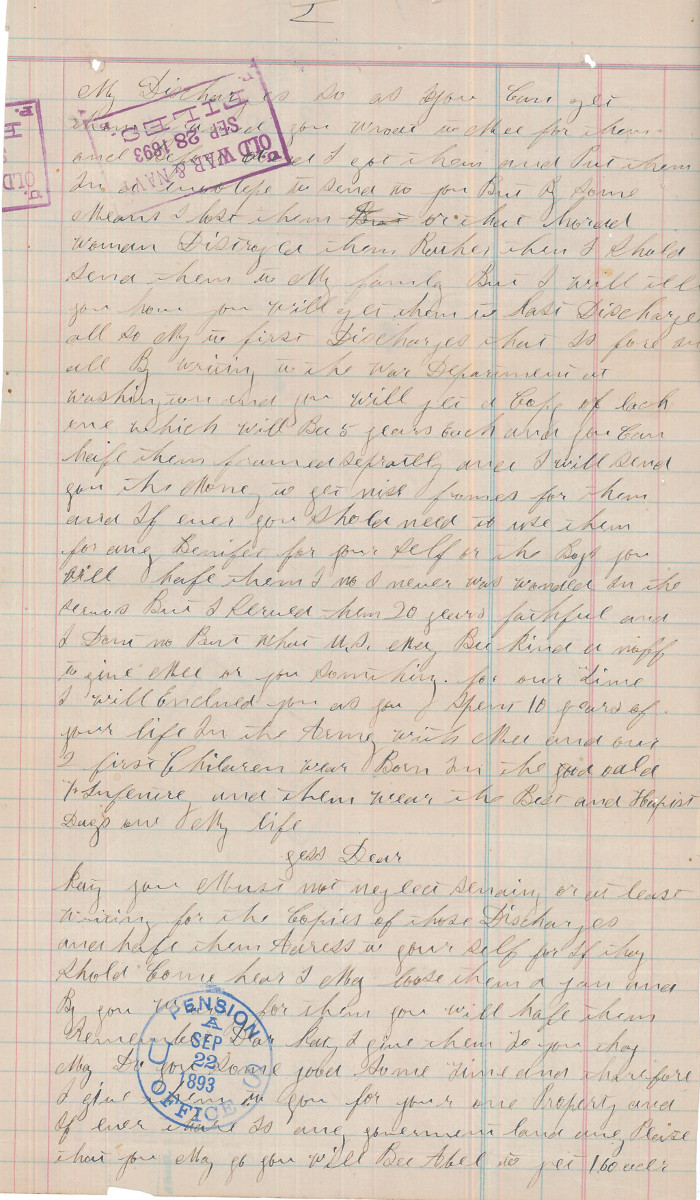 I
My Discharges so as you Can get
them you wrote to Mee for them
and I got them and Put them
In an Envelope to send to you But By Some
Means I lost them or that horad
woman Distroyed them Rather then I Shold
Send them to My family But I will tell
you how you will get them to Last Discharges
all so My to first Discharges that Is fore in
all By writing to the War Department at
washington and you will get a Copy of Each
one which will Bee 5 years Each and you Can
haife them framed sepratly and I will send
you the Money to get nise frames for them
and If ever you Shold need to use them
for any Benifee for your Self or the Boys you
will hafe them I no I never was wonded In the
But I Served them 20 years faithful and
I Dont no But what U.S. May Bee kind a nuff
to give Mee or you Something for our time
I will Enclued you as you Spent 10 years of
your life In the Army with Mee and our
2 first Children wear Born In the good oald
7th Infentre and them wear the Best and Hapist
Days our My life
yess Dear
Kay you Must not neglect Sending or at least
writing for the Copies of those Discharges
and hafe them Adress to your self for If they
Shold Come hear I May loose them a gan and
By you for them you will hafe them
Remember Dear Kay I give them to you they
May Do you Some good Some time and therefore
I give them to you for your one Property and
If ever there Is any government land any Plaise
that you May go you will Bee Abel to get 160 acer
OLD WAR & NAVY
SEP 28 1893
FILES
OLD
PENSION OFFICE
U
SEP
22
1893